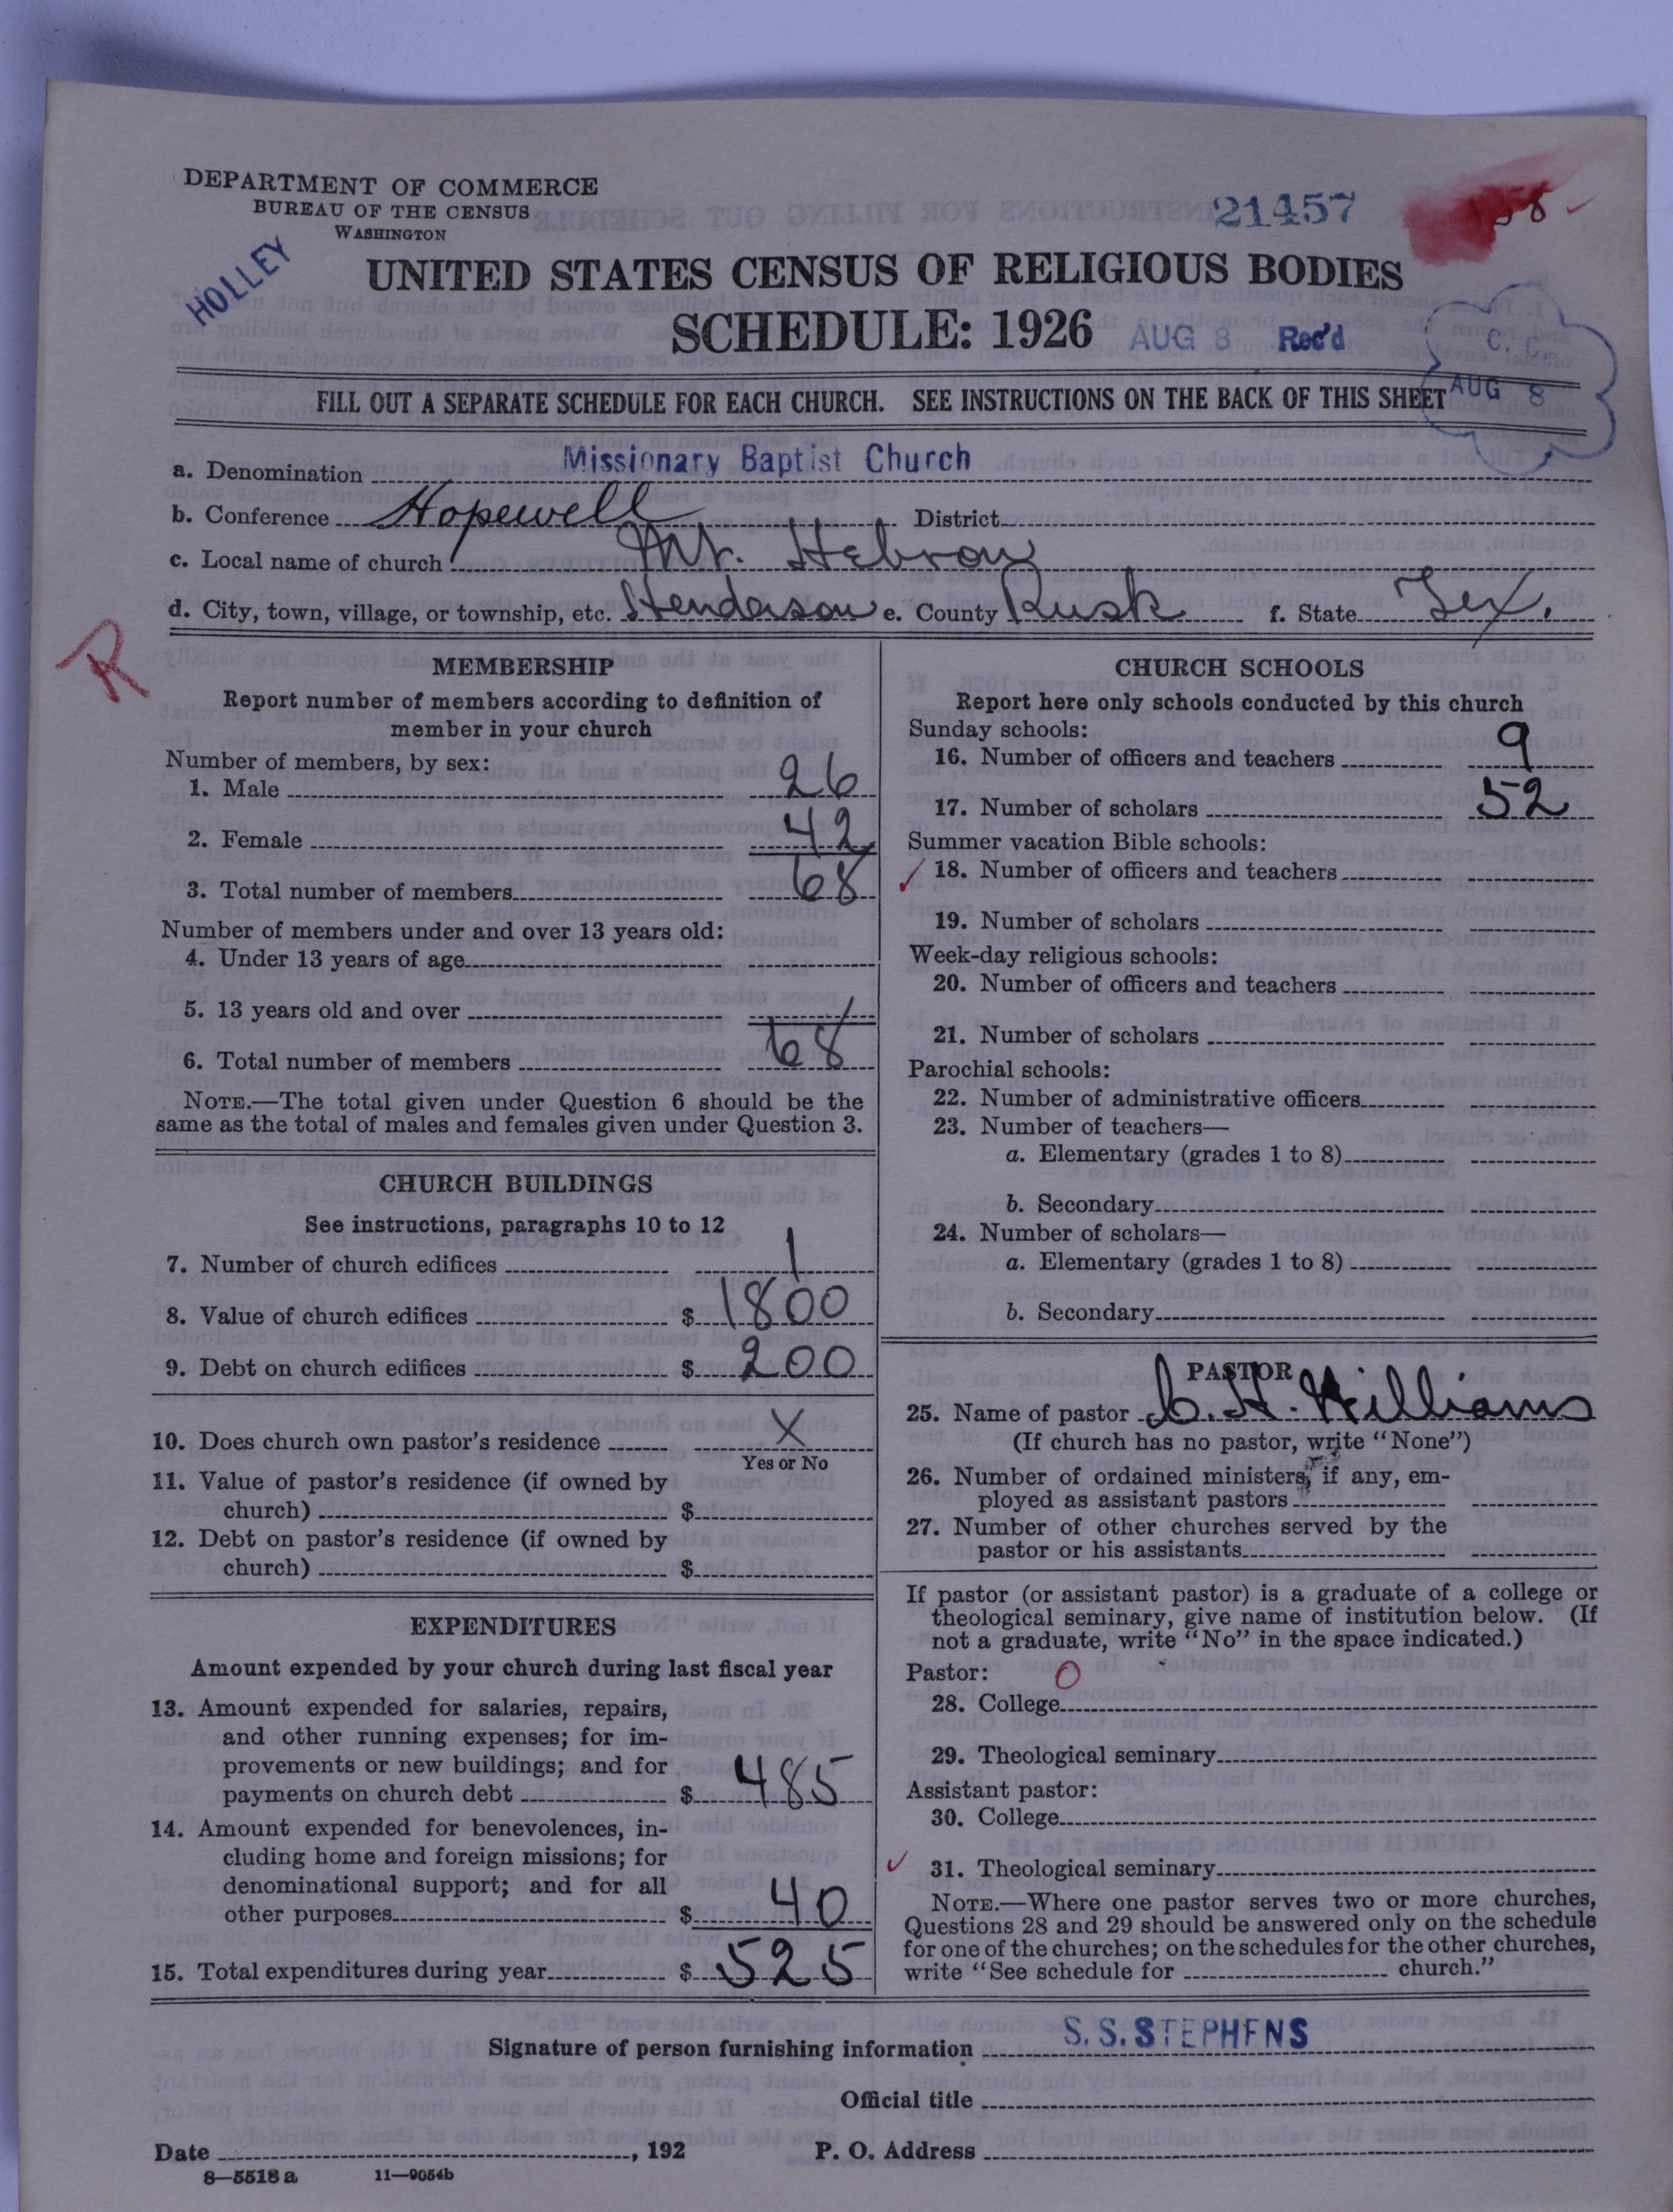 DEPARTMENT OF COMMERCE
BUREAU OF THE CENSUS
WASHINGTON
21457
HOLLEY
UNITED STATES CENSUS OF RELIGIOUS BODIES
SCHEDULE: 1926 AUG 8 Rec'd
C. C.
AUG 8
FILL OUT A SEPARATE SCHEDULE FOR EACH CHURCH. SEE INSTRUCTIONS ON THE BACK OF THIS SHEET
a. Denomination Missionary Baptist Church
b. Conference Hopewell District
c. Local name of church Mt. Hebron
d. City, town, village, or township, etc. Henderson e. County Rusk f. State Tex.
R
MEMBERSHIP
Report number of members according to definition of
member in your church
Number of members, by sex:
1. Male 26
2. Female 42
3. Total number of members 68
Number of members under and over 13 years old:
4. Under 13 years of age
5. 13 years old and over
6. Total number of members 68
NOTE.—The total given under Question 6 should be the
same as the total of males and females given under Question 3.
CHURCH BUILDINGS
See instructions, paragraphs 10 to 12
7. Number of church edifices 1
8. Value of church edifices $ 1800
9. Debt on church edifices $ 200
10. Does church own pastor's residence X
Yes or No
11. Value of pastor's residence (if owned by
church) $
12. Debt on pastor's residence (if owned by
church) $
EXPENDITURES
Amount expended by your church during last fiscal year
13. Amount expended for salaries, repairs,
and other running expenses; for im-
provements or new buildings; and for
payments on church debt $ 485
14. Amount expended for benevolences, in-
cluding home and foreign missions; for
denominational support; and for all
other purposes $ 40
15. Total expenditures during year $ 525
CHURCH SCHOOLS
Report here only schools conducted by this church
Sunday schools:
16. Number of officers and teachers 9
17. Number of scholars 52
Summer vacation Bible schools:
18. Number of officers and teachers
19. Number of scholars
Week-day religious schools:
20. Number of officers and teachers
21. Number of scholars
Parochial schools:
22. Number of administrative officers
23. Number of teachers—
a. Elementary (grades 1 to 8)
b. Secondary
24. Number of scholars—
a. Elementary (grades 1 to 8)
b. Secondary
PASTOR
25. Name of pastor C. H. Williams
(If church has no pastor, write "None")
26. Number of ordained ministers, if any, em-
ployed as assistant pastors
27. Number of other churches served by the
pastor or his assistants
If pastor (or assistant pastor) is a graduate of a college or
theological seminary, give name of institution below. (If
not a graduate, write "No" in the space indicated.)
Pastor: O
28. College
29. Theological seminary
Assistant pastor:
30. College
31. Theological seminary
NOTE.—Where one pastor serves two or more churches,
Questions 28 and 29 should be answered only on the schedule
for one of the churches; on the schedules for the other churches,
write "See schedule for church."
Signature of person furnishing information S. S. STEPHENS
Official title
Date , 192 P. O. Address
8—5518 a 11—9054b